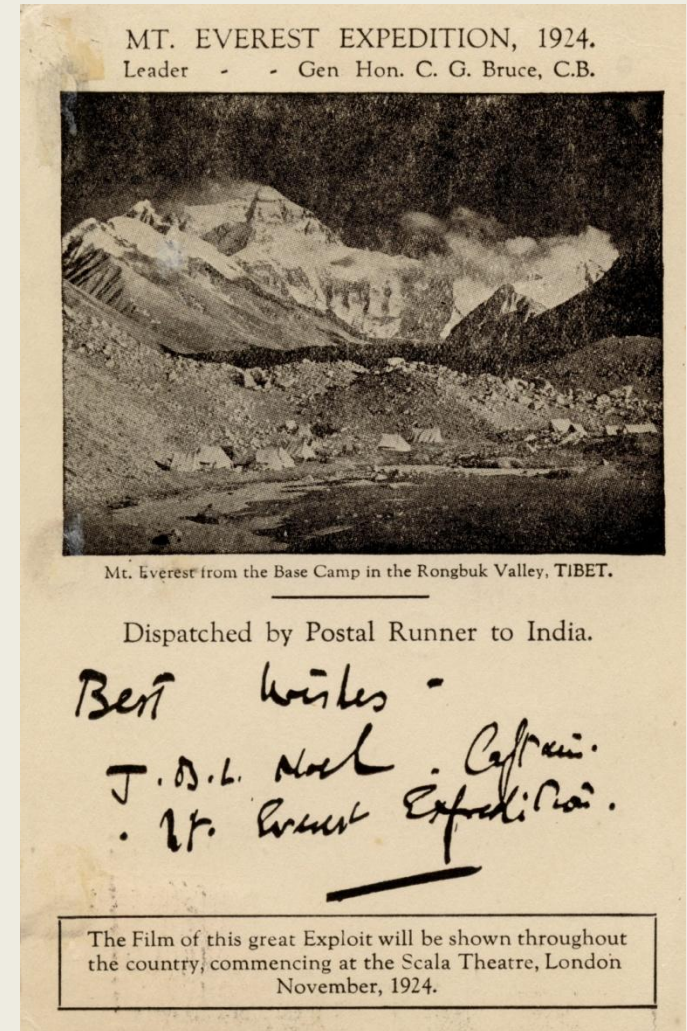 MT. EVEREST EXPEDITION, 1924.
Leader - - Gen Hon. C. G. Bruce, C.B.
Mt. Everest from the Base Camp in the Rongbuk Valley, TIBET.
Dispatched by Postal Runner to India.
Best wishes -
J.B.L. Noel. Captain.
. Mt. Everest Expedition.
The Film of this great Exploit will be shown throughout
the country, commencing at the Scala Theatre, London
November, 1924.